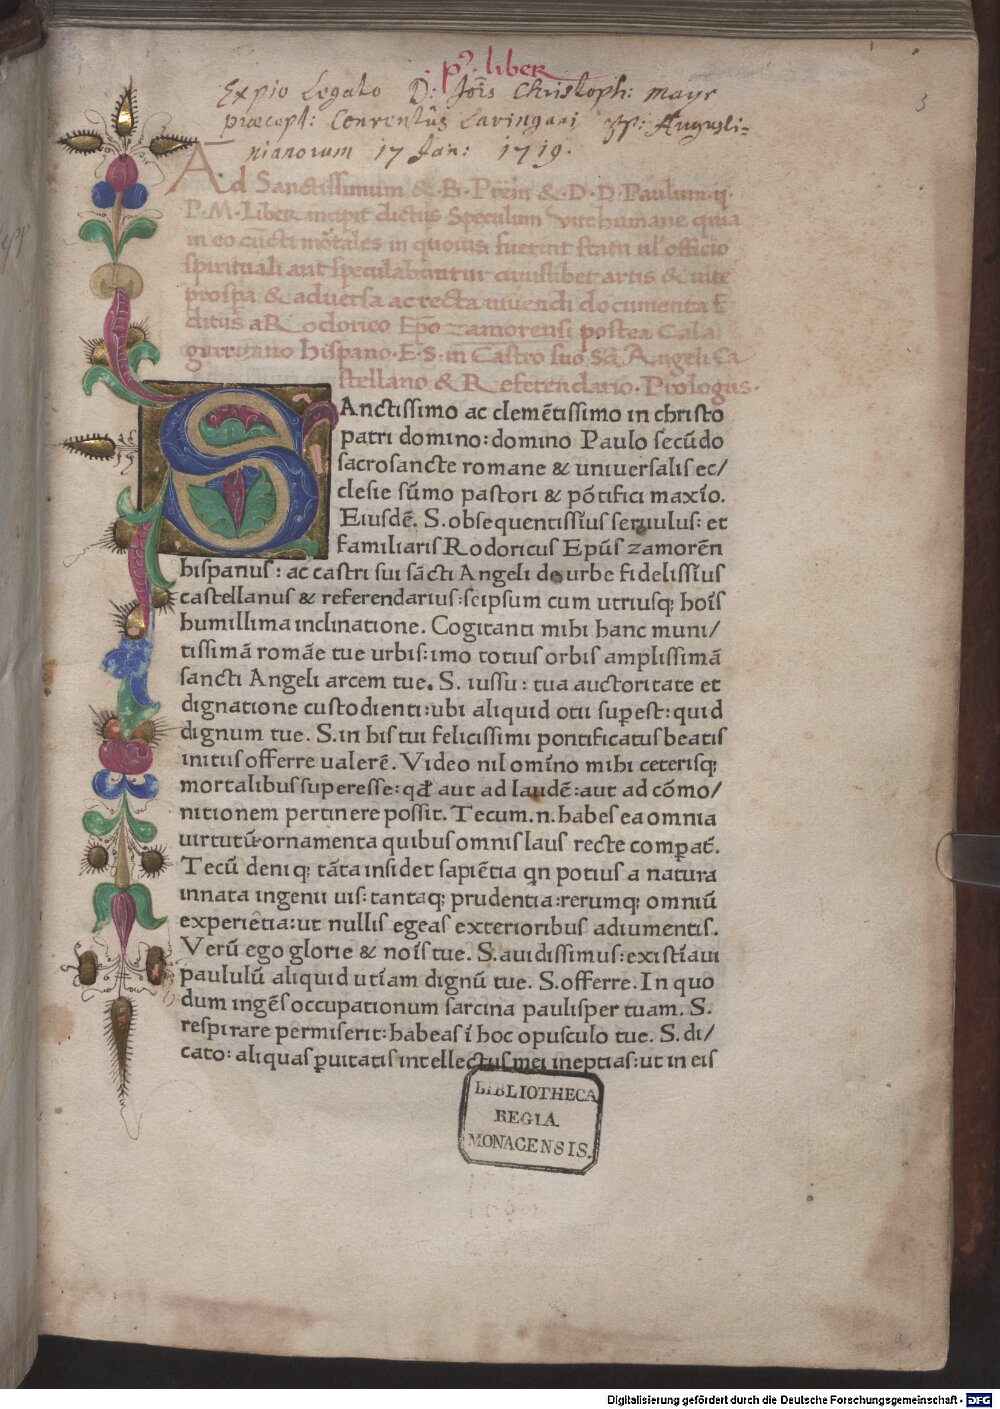 p'. liber
3
Ex pio Legato D: Jõis Christoph: mayr
præcept: Conventûs Lavingani PP: Augusti=
nianorum 17 Jan: 1719.
Ad Sanctissimum & B. Prem̃ & D. D. Paulum .ij.
P. M. Liber incipit dictus Speculum vite humane quia
in eo cũcti mõtales in quouis fuerint statu ul' officio
spirituali aut speculabuntur cuiuslibet artis & uite
prospa & aduersa ac recta uiuendi documenta E
ditus a Rodorico Epõ zamorensi postea Cala
guritano hispano. E. S. in Castro suo Sãi Angeli Ca
stellano & Referendario. Prologus.
SAnctissimo ac clemẽtissimo in christo
patri domino: domino Paulo secũdo
sacrosancte romane & uniuersalis ec/
clesie sũmo pastori & põtifici maxĩo.
Eiusdẽ. S. obsequentissĩus seruulus: et
familiaris Rodoricus Epũs zamorẽn
hispanus: ac castri sui sãcti Angeli de urbe fidelissĩus
castellanus & referendarius: seipsum cum utriusq; hoĩs
humillima inclinatione. Cogitanti mihi hanc muni/
tissimã romãe tue urbis: imo totius orbis amplissimã
sancti Angeli arcem tue. S. iussu: tua auctoritate et
dignatione custodienti: ubi aliquid otii supest: quid
dignum tue. S. in his tui felicissimi pontificatus beatis
initiis offerre ualerẽ. Video nil omĩno mihi ceterisq;
mortalibus superesse: qđ aut ad laudẽ: aut ad cõmo/
nitionem pertinere possit. Tecum .n. habes ea omnia
uirtutũ ornamenta quibus omnis laus recte compat̃.
Tecũ deniq; tãta insidet sapiẽtia qn potius a natura
innata ingenii uis: tantaq; prudentia: rerumq; omniũ
experiẽtia: ut nullis egeas exterioribus adiumentis.
Verũ ego glorie & noĩs tue. S. auidissimus: existĩaui
paululũ aliquid utĩam dignũ tue. S. offerre. In quo
dum ingẽs occupationum sarcina paulisper tuam. S.
respirare permiserit: habeas ĩ hoc opusculo tue. S. di/
cato: aliquas puitatis intellectus mei ineptias: ut in eis
BIBLIOTHECA
REGIA
MONACENSIS.
Digitalisierung gefördert durch die Deutsche Forschungsgemeinschaft - DFG